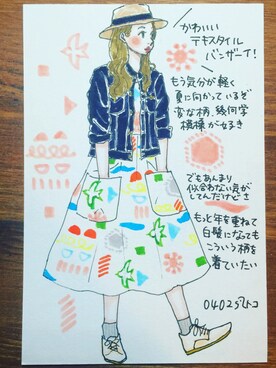 かわいい
テキスタイル
バンザーイ!
もう気分が軽く
夏に向かっているぞ
変な柄、幾何学
模様がなるき
でもあんまり
似合わない気が
してんだけどさ
もっと年を重ねて
白髪になっても
こういう柄を
着ていたい
0402